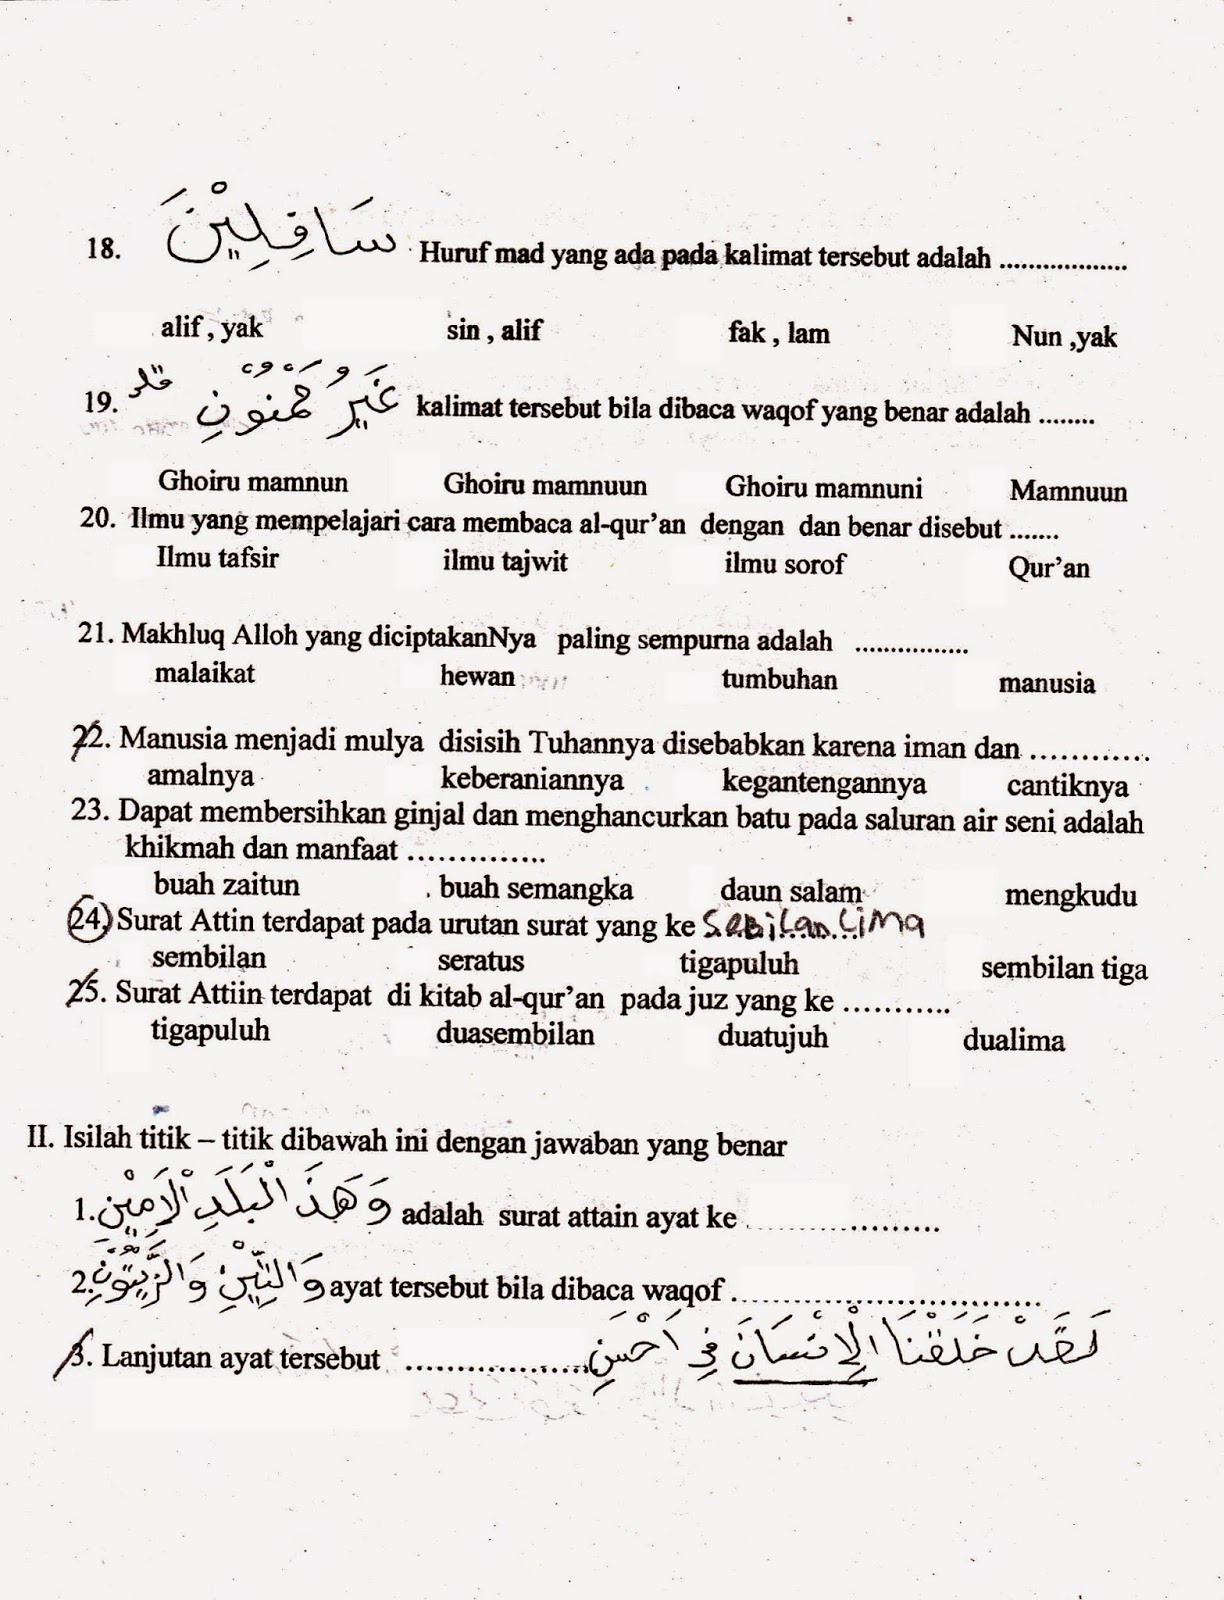 18. سَافِلِيْنَ Huruf mad yang ada pada kalimat tersebut adalah ..................
alif , yak sin , alif fak , lam Nun ,yak
19. غَيْرُ مَمْنُوْنٍ kalimat tersebut bila dibaca waqof yang benar adalah ........
Ghoiru mamnun Ghoiru mamnuun Ghoiru mamnuni Mamnuun
20. Ilmu yang mempelajari cara membaca al-qur’an dengan dan benar disebut .......
Ilmu tafsir ilmu tajwit ilmu sorof Qur’an
21. Makhluq Alloh yang diciptakanNya paling sempurna adalah ................
malaikat hewan tumbuhan manusia
22. Manusia menjadi mulya disisih Tuhannya disebabkan karena iman dan ............
amalnya keberaniannya kegantengannya cantiknya
23. Dapat membersihkan ginjal dan menghancurkan batu pada saluran air seni adalah
khikmah dan manfaat ..............
buah zaitun buah semangka daun salam mengkudu
24. Surat Attin terdapat pada urutan surat yang ke Sebilan Lima
sembilan seratus tigapuluh sembilan tiga
25. Surat Attiin terdapat di kitab al-qur’an pada juz yang ke ...........
tigapuluh duasembilan duatujuh dualima
II. Isilah titik – titik dibawah ini dengan jawaban yang benar
1. وَهَذَ الْبَلَدِ الْاَمِيْنِ adalah surat attain ayat ke ....................
2. وَالتِّيْنِ وَالزَّيْتُوْنِ ayat tersebut bila dibaca waqof ..............................
3. Lanjutan ayat tersebut .................... لَقَدْ خَلَقْنَا الْاِنْسَانَ فِى اَحْسَنِ